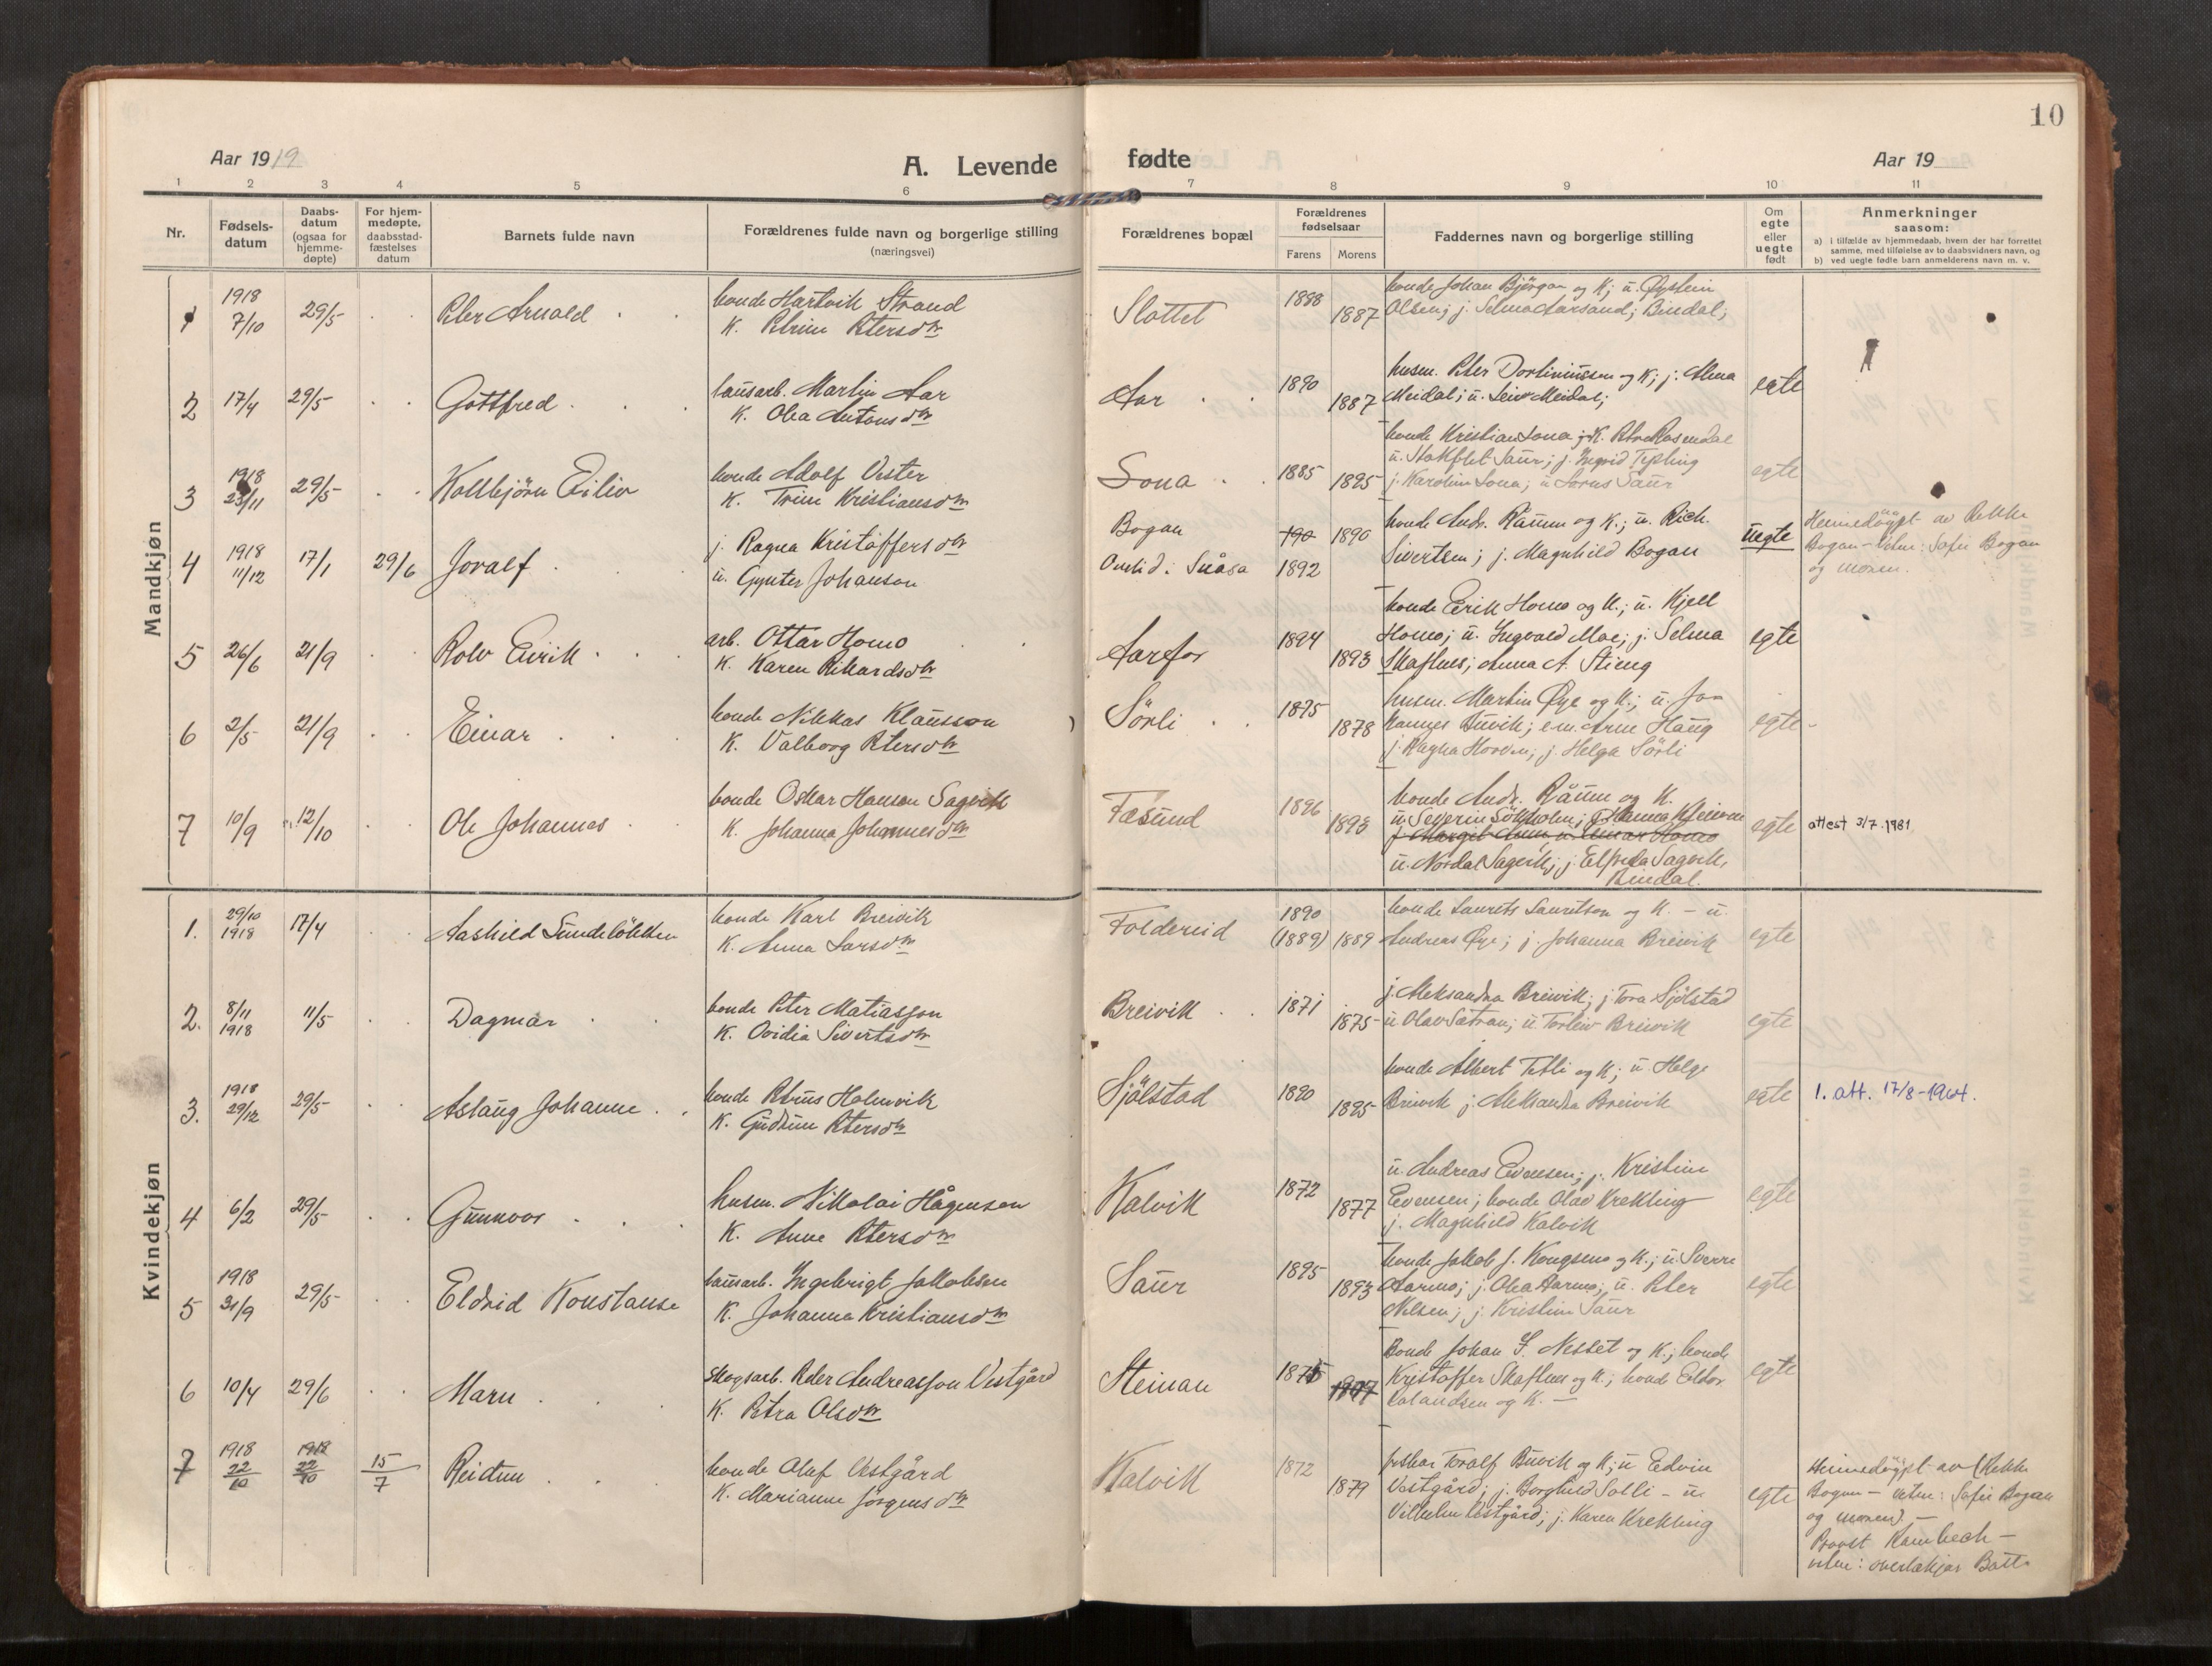 10
Aar 1919
A. Levende fødte
Aar 19
1 2 3 4 5 6 7 8 9 10 11
Nr.
Fødsels-
datum
Daabs-
datum
(ogsaa for
hjemme-
døpte)
For hjem-
medøpte,
daabsstad-
fæstelses
datum
Barnets fulde navn
Forældrenes fulde navn og borgerlige stilling
(næringsvei)
Forældrenes bopæl
Forældrenes
fødselsaar
Farens Morens
Faddernes navn og borgerlige stilling
Om
egte
eller
uegte
født
Anmerkninger
saasom:
a) i tilfælde av hjemmedaab, hvem der har forrettet
samme, med tilføielse av to daabsvidners navn, og
b) ved uegte fødte barn anmelderens navn m. v.
Mandkjøn
1 1918 7/10 29/5 Peter Arnold
bonde Hartvik Strand
K. Petrine Petersdtr
Slottet 1888 1887
bonde Johan Bjørgan og K; u. Øystein
Olsen; j. Selma Aarsand; Bindal;
2 17/4 29/5 Gottfred
lausarb. Martin Aar
K. Olea Antonsdtr
Aar 1890 1887
husm. Peter Dortiniussen og K; j. Alma
Meidal; u. Leiv Meidal;
egte
3 1918 23/11 29/5 Kolbjörn Eiliv
bonde Adolf Vester
K. Trine Kristiansdtr
Sona 1885 1895
bonde Kristian Sona; K. Petra Rosendal
u. Stokflet Saur; j. Ingrid Tepling
j. Karoline Sona; u Sorus Saur
egte
4 1918 11/12 17/1 29/6 Joralf
j. Ragna Kristoffersdtr
u. Gynter Johanson
Bogan
Overlid. Snåsa
190 1890
1892
bonde Andr. Råum og K.; u. Rich.
Sivertsen; j. Magnhild Bogan
uegte
Heimedöypt av Rekke
Bogan - Vitne: Sofie Bogan
og moren.
5 26/6 21/9 Rolv Eirik
arb. Ottar Homo
K. Karen Rikardsdtr
Aarfor 1894 1893
bonde Eirik Homo og K.; u. Kjell
Homo; u. Ingvald Moe; j. Selma
Skaflnes; Anna A. Stieng
egte
6 2/5 21/9 Einar
bonde Nikkas Klausson
K. Valborg Petersdtr
Sörli 1875 1878
husm. Martin Øye og K.; u. Jo-
hannes Buvik; e.m. Arne Haug
j. Ragna Horven; j. Helga Sörli
egte
7 10/9 12/10 Ole Johannes
bonde Oskar Hansen Sagvik
K. Johanna Johannesdtr
Fæsund 1896 1893
bonde Andr. Råum og K.
u. Severin Sökholm; j. Hanna Kleivan
u. Nordal Sagvik; j. Elfrida Sagvik,
Bindal.
egte
attest 3/7.1981
Kvindekjøn
1. 29/10 1918 17/4 Aashild Sundelökken
bonde Karl Breivik
K. Anna Larsdtr
Foldereid 1890 (1889) 1889
bonde Laurits Lauritsen og K. - u.
Andreas Øye; j. Johanna Breivik
egte
2. 8/11 1918 11/5 Dagmar
bonde Peter Matiasson
K. Ovidia Sivertsdtr
Breivik 1871 1875
j. Aleksandra Breivik; j Tora Sjölstad
u Olav Sætran; u. Torleiv Breivik
egte
3. 1918 29/12 29/5 Aslaug Johanne
bonde Petrus Holmvik
K. Gudrun Petersdtr
Sjölstad 1890 1895
bonde Albert Tetli og K; u. Helge
Breivik j. Aleksandra Breivik
egte
1. att. 17/8-1964.
4 6/2 29/5 Gunnvor
husm. Nikolai Hågenson
K. Anne Petersdtr
Kalvik 1872 1877
u. Andreas Evensen; j. Kristine
Evensen; bonde Olav Krekling
j. Magnhild Kalvik
egte
5 1918 31/9 29/5 Eldrid Konstanse
lausarb. Ingebrigt Jakobsen
K. Johanna Kristiansdtr
Saur 1895 1893
bonde Jakob J. Kongsmo og K.; u. Sverre
Aarmo; j. Olea Aarmo; u. Peter
Nilsen; j. Kristine Saur
egte
6 10/4 29/6 Marn
skogsarb. Peder Andreasson Vestgård
K. Petra Olsdtr
Steinan 1875
Bonde Johan S. Nesset og K.; bonde
Kristoffer Skaflnes og K.; bonde Eldor
Rolandsen og K. -
egte
7 1918 22/10 1918 22/10 15/7 Reidun
bonde Olaf Vestgård
K. Marianne Jörgensdtr
Kalvik 1872 1879
Toralf Buvik og K; u Edvin
Vestgård; j. Borghild Solli - u.
Vilhelm Vestgård; j. Karen Krekling
egte
Heimedöypt av (Rekke
Bogan - vitne: Sofie Bogan
og moren) -
Provst Rambech -
vitne: overlækjar Bött-